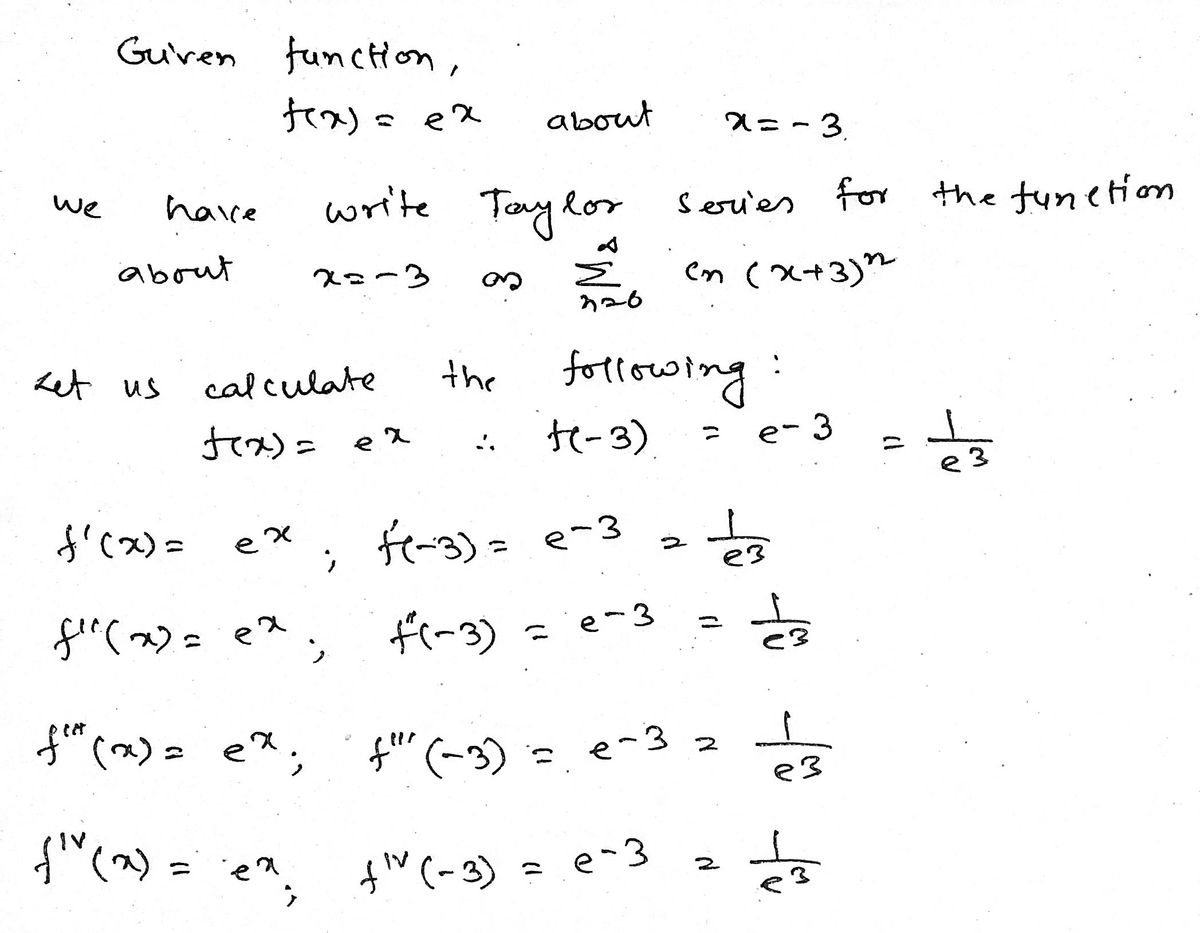 Given function,
f(x) = eˣ about x = -3.
we have write Taylor series for the function
about x = -3 as ∑_{n=0}^{∞} cn (x+3)ⁿ
Let us calculate the following :
f(x) = eˣ ∴ f(-3) = e-3 = 1/e³
f'(x) = eˣ ; f'(-3) = e⁻³ = 1/e³
f''(x) = eˣ ; f''(-3) = e⁻³ = 1/e³
f'''(x) = eˣ ; f'''(-3) = e⁻³ = 1/e³
fᴵⱽ(x) = eˣ ; fᴵⱽ(-3) = e⁻³ = 1/e³